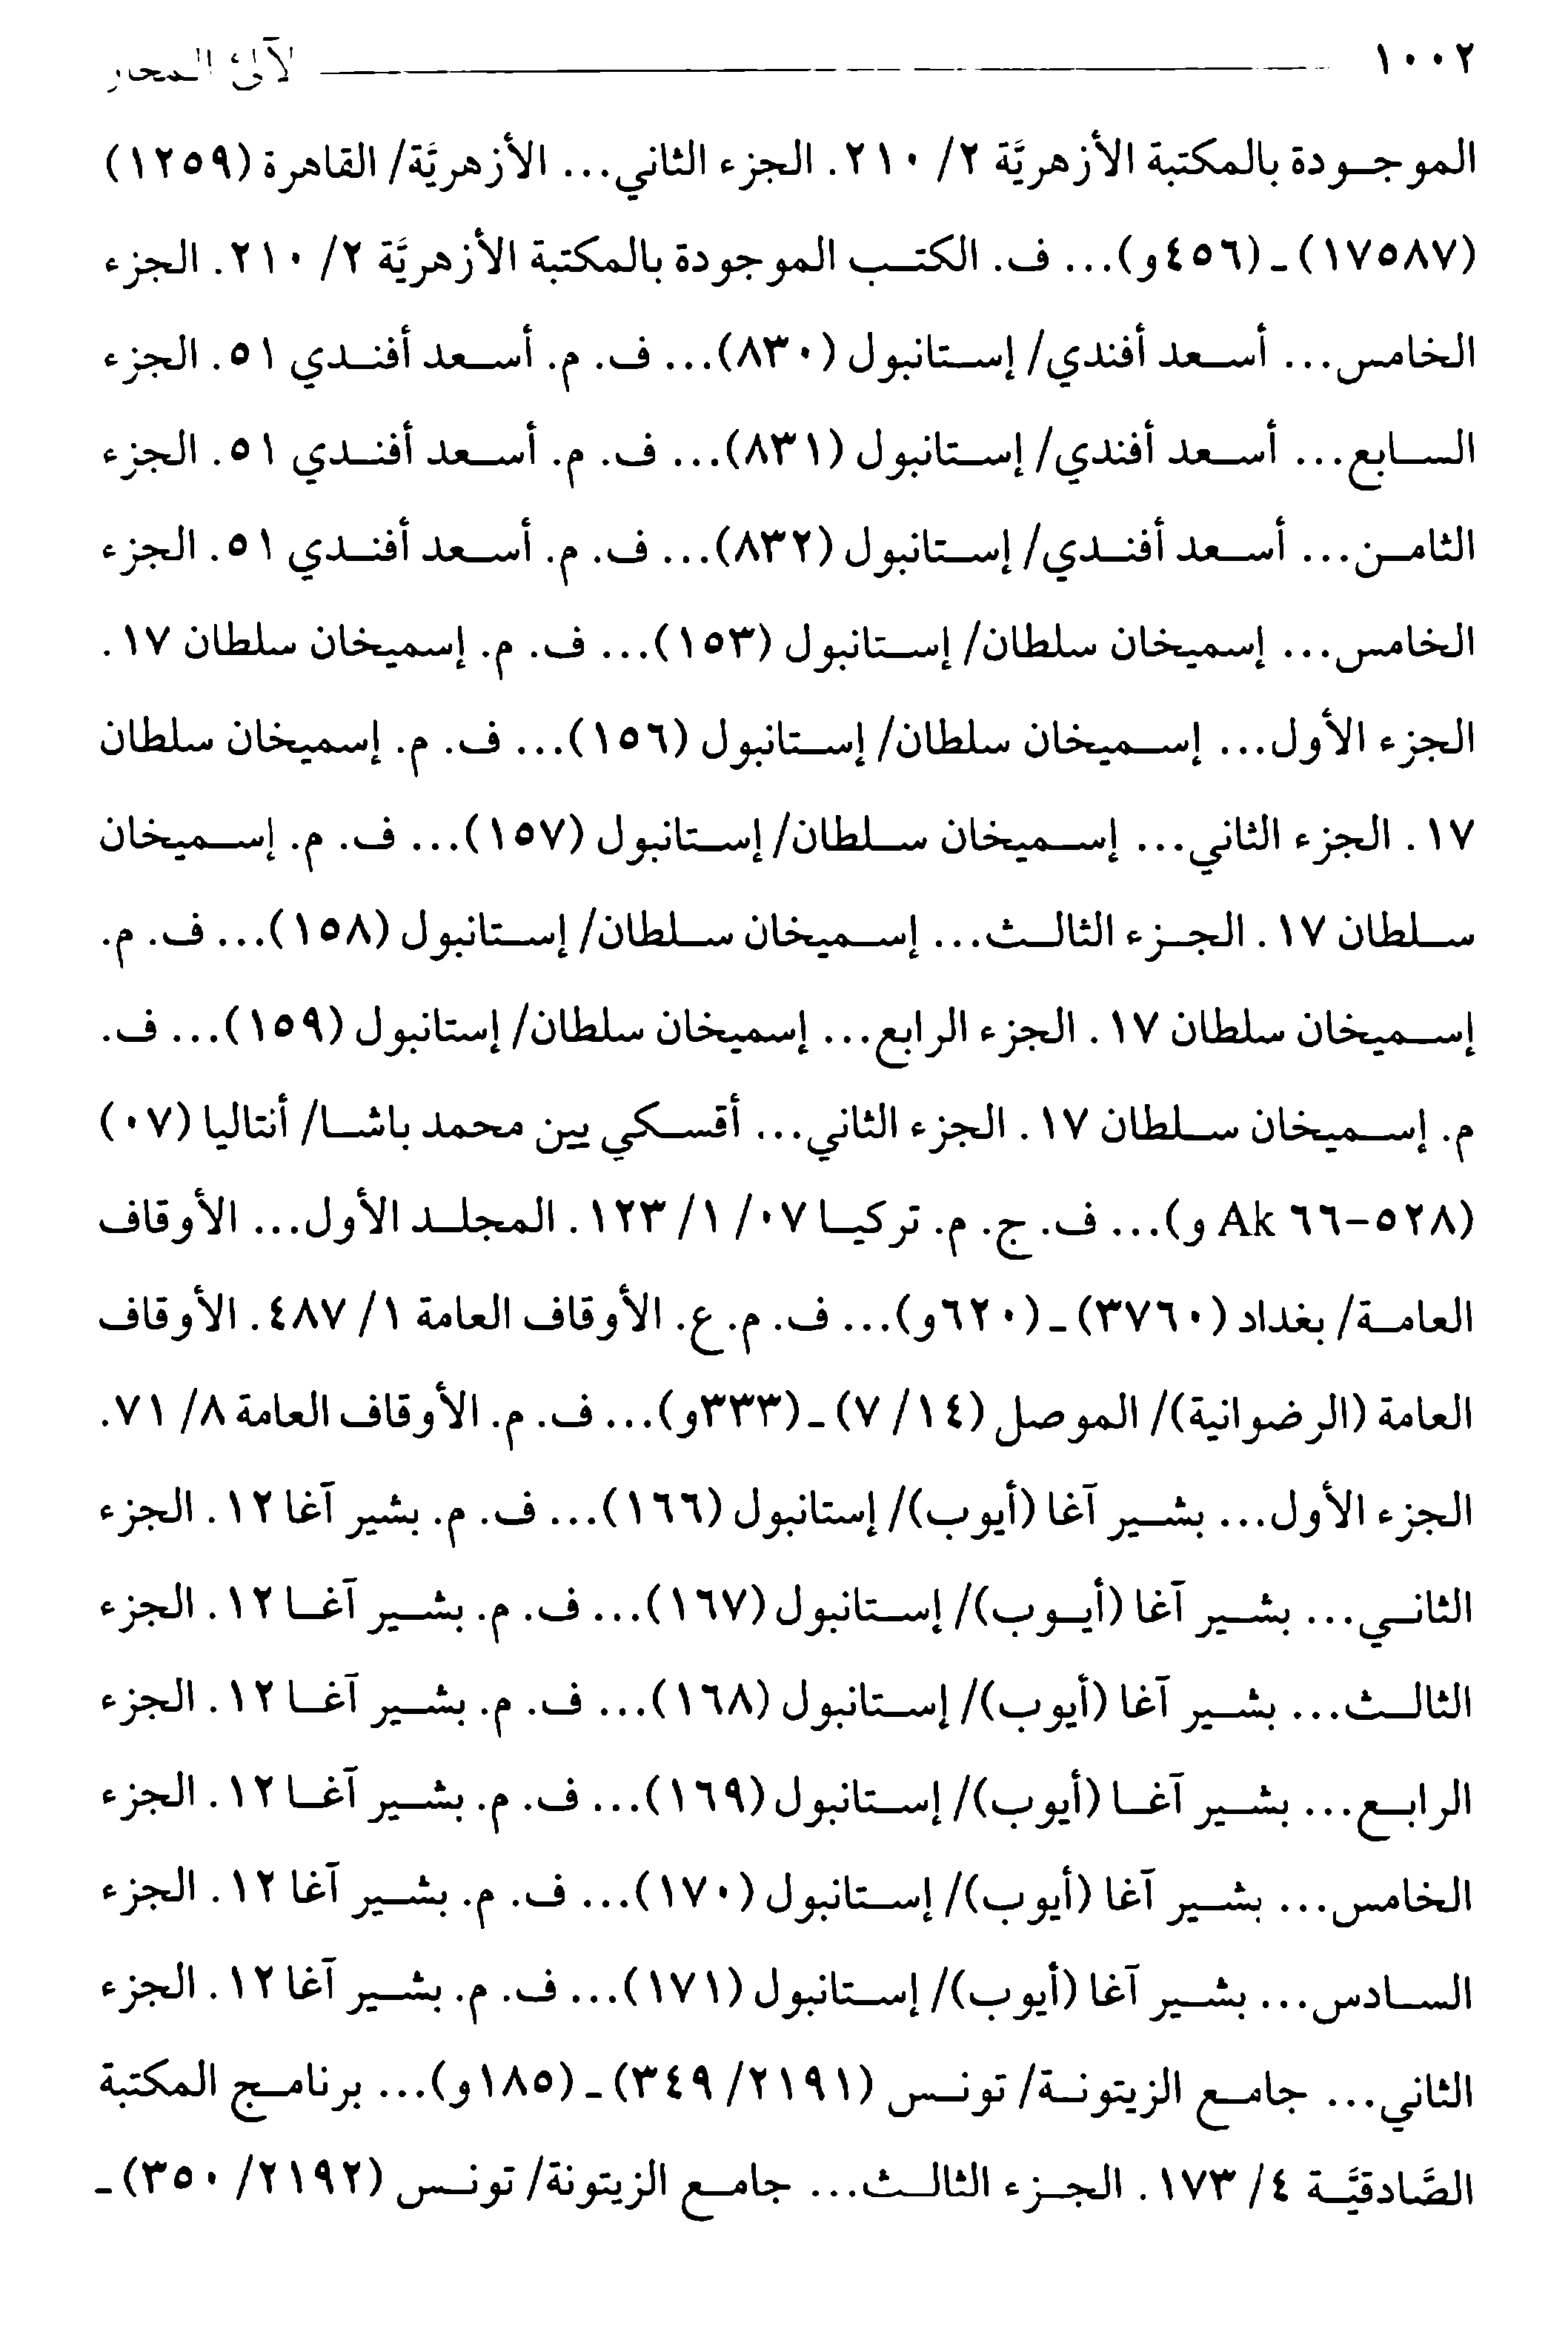 ١٠٠٢ لآلئ المحار
الموجودة بالمكتبة الأزهريَّة ٢/ ٢١٠. الجزء الثاني... الأزهريَّة/ القاهرة (١٢٥٩)
(١٧٥٨٧) ـ (٤٥٦و)... ف. الكتب الموجودة بالمكتبة الأزهريَّة ٢/ ٢١٠. الجزء
الخامس... أسعد أفندي/ إستانبول (٨٣٠)... ف. م. أسعد أفندي ٥١. الجزء
السابع... أسعد أفندي/ إستانبول (٨٣١)... ف. م. أسعد أفندي ٥١. الجزء
الثامن... أسعد أفندي/ إستانبول (٨٣٢)... ف. م. أسعد أفندي ٥١. الجزء
الخامس... إسميخان سلطان/ إستانبول (١٥٣)... ف. م. إسميخان سلطان ١٧.
الجزء الأول... إسميخان سلطان/ إستانبول (١٥٦)... ف. م. إسميخان سلطان
١٧. الجزء الثاني... إسميخان سلطان/ إستانبول (١٥٧)... ف. م. إسميخان
سلطان ١٧. الجزء الثالث... إسميخان سلطان/ إستانبول (١٥٨)... ف. م.
إسميخان سلطان ١٧. الجزء الرابع... إسميخان سلطان/ إستانبول (١٥٩)... ف.
م. إسميخان سلطان ١٧. الجزء الثاني... أقسكي يين محمد باشا/ أنتاليا (٠٧)
(٥٢٨-٦٦ Ak و)... ف. ج. م. تركيا ٠٧/ ١/ ١٢٣. المجلد الأول... الأوقاف
العامة/ بغداد (٣٧٦٠) ـ (٦٢٠و)... ف. م. ع. الأوقاف العامة ١/ ٤٨٧. الأوقاف
العامة (الرضوانية)/ الموصل (١٤/ ٧) ـ (٣٣٣و)... ف. م. الأوقاف العامة ٨/ ٧١.
الجزء الأول... بشير آغا (أيوب)/ إستانبول (١٦٦)... ف. م. بشير آغا ١٢. الجزء
الثاني... بشير آغا (أيوب)/ إستانبول (١٦٧)... ف. م. بشير آغا ١٢. الجزء
الثالث... بشير آغا (أيوب)/ إستانبول (١٦٨)... ف. م. بشير آغا ١٢. الجزء
الرابع... بشير آغا (أيوب)/ إستانبول (١٦٩)... ف. م. بشير آغا ١٢. الجزء
الخامس... بشير آغا (أيوب)/ إستانبول (١٧٠)... ف. م. بشير آغا ١٢. الجزء
السادس... بشير آغا (أيوب)/ إستانبول (١٧١)... ف. م. بشير آغا ١٢. الجزء
الثاني... جامع الزيتونة/ تونس (٢١٩١/ ٣٤٩) ـ (١٨٥و)... برنامج المكتبة
الصَّادقيَّة ٤/ ١٧٣. الجزء الثالث... جامع الزيتونة/ تونس (٢١٩٢/ ٣٥٠) ـ